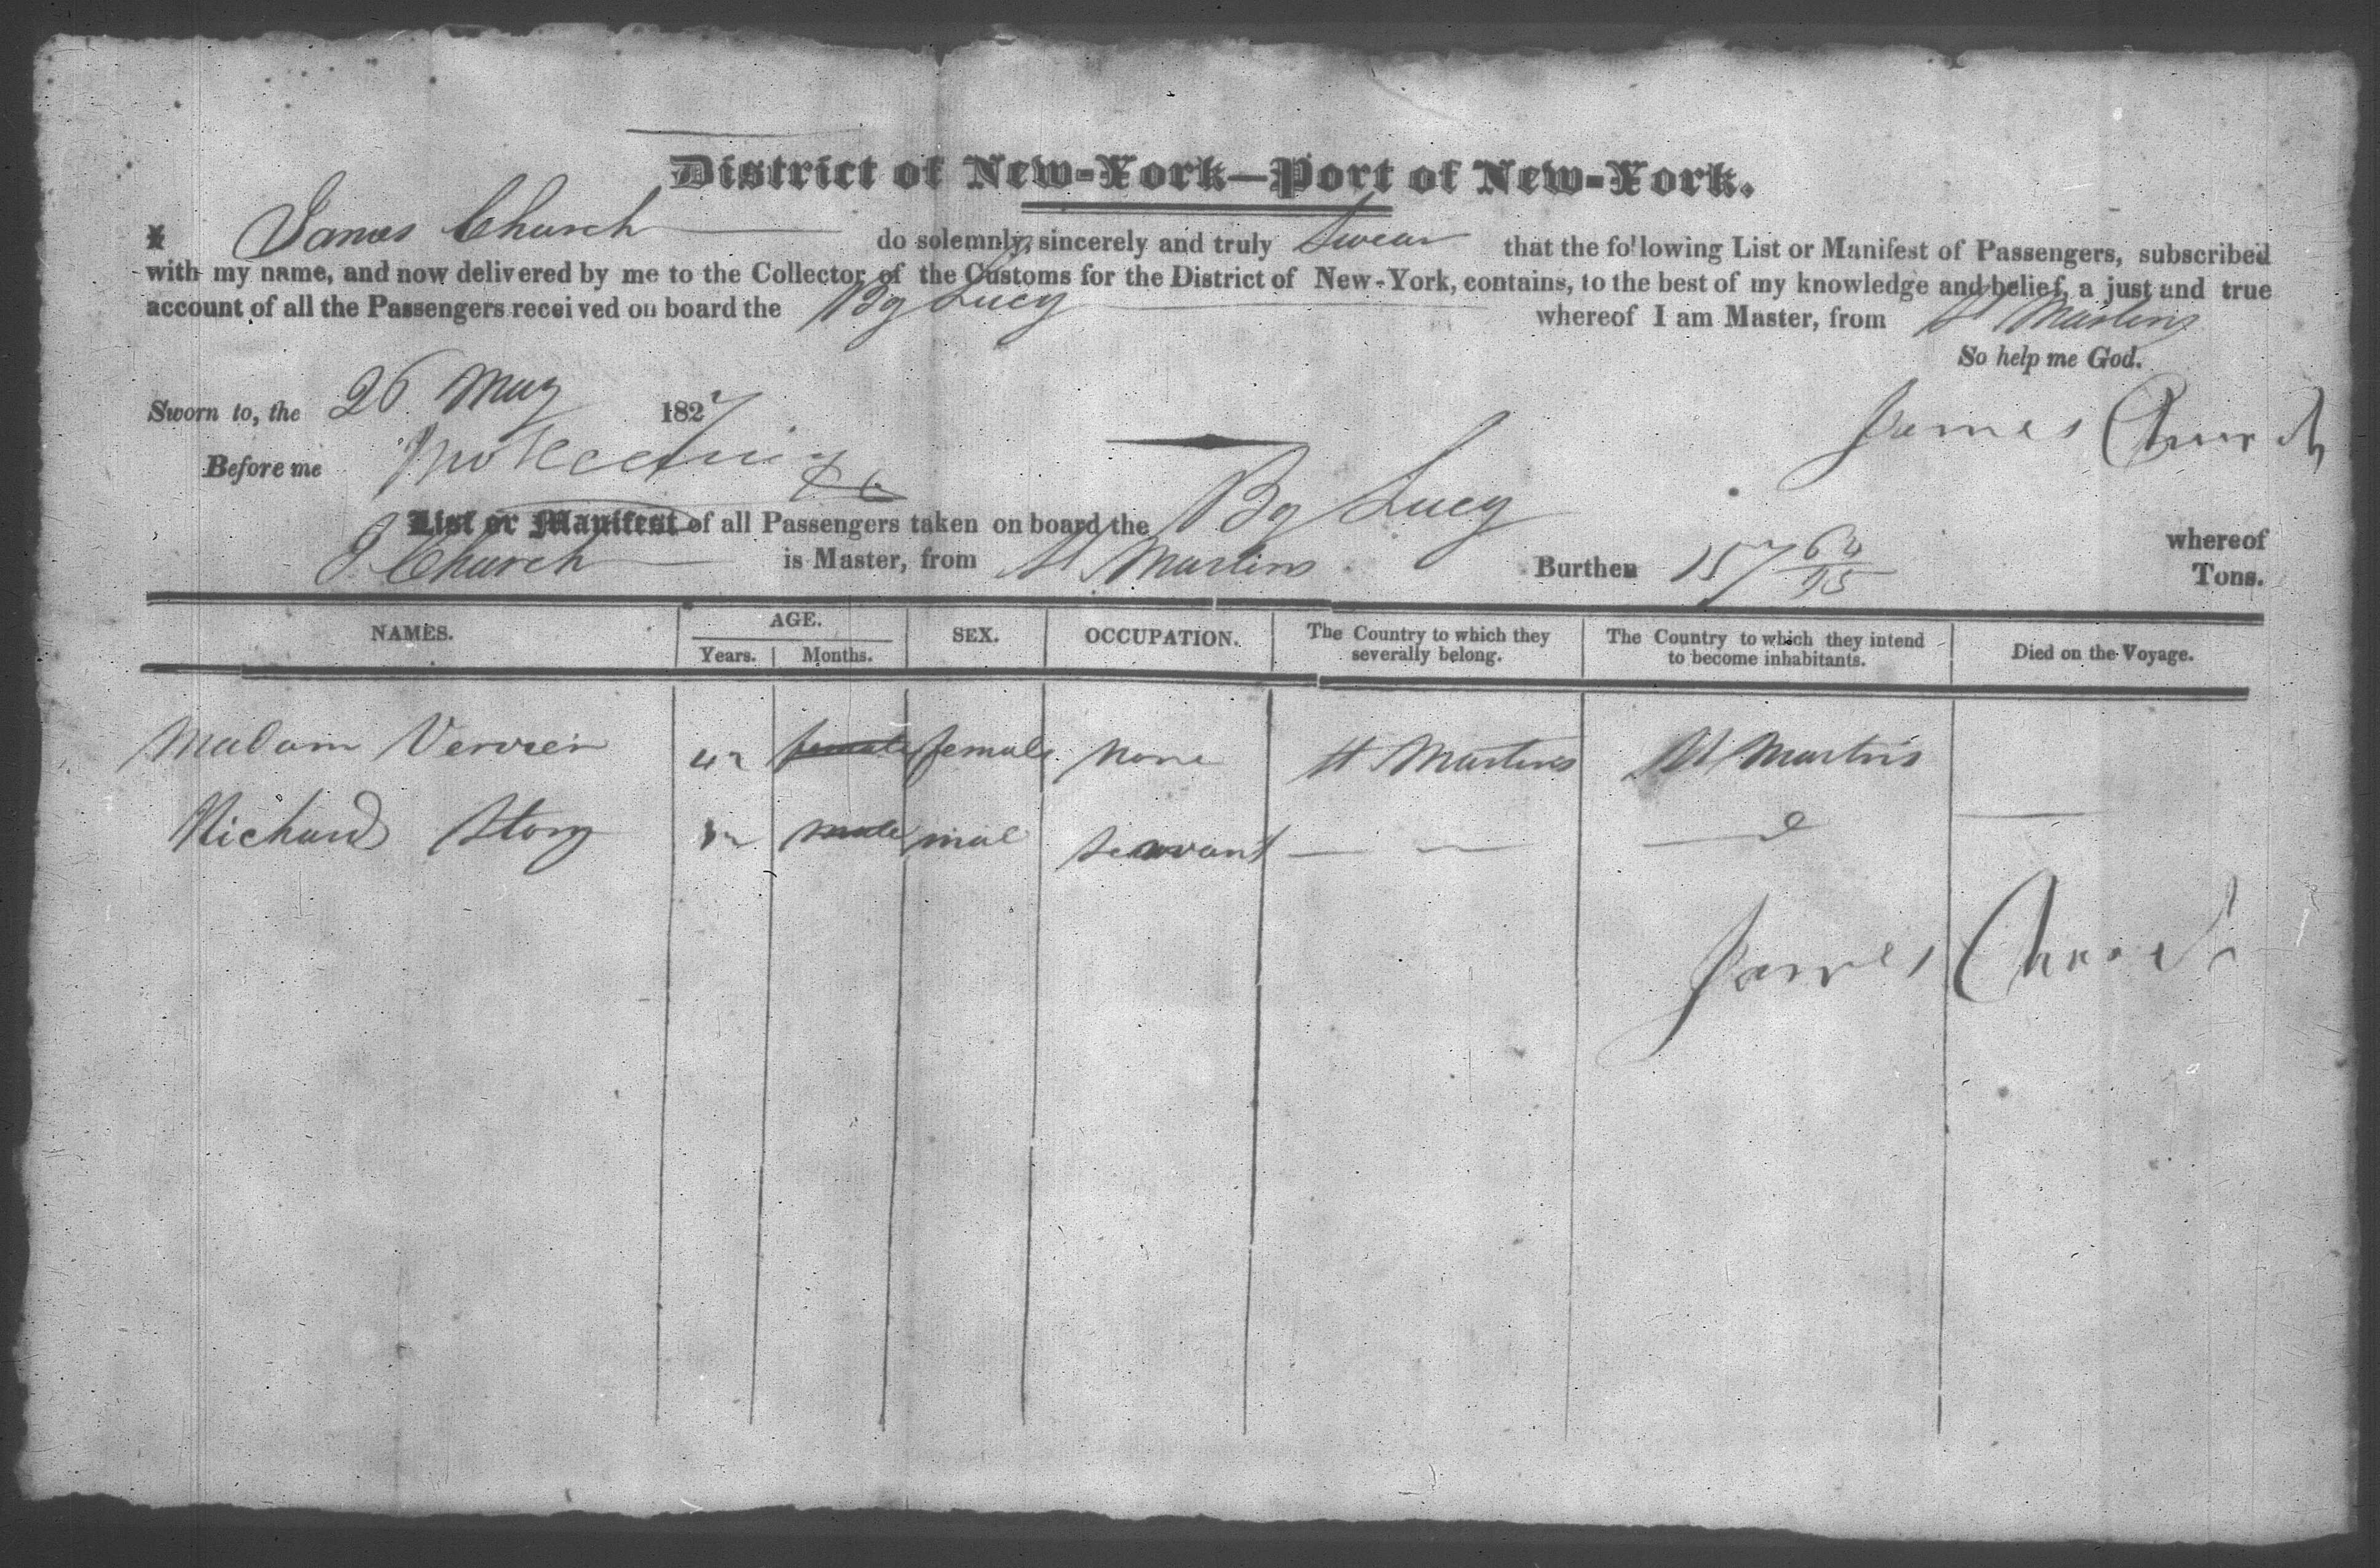 District of New-York—Port of New-York.
I James Church do solemnly, sincerely and truly Swear that the following List or Manifest of Passengers, subscribed
with my name, and now delivered by me to the Collector of the Customs for the District of New-York, contains, to the best of my knowledge and belief, a just and true
account of all the Passengers received on board the Bg Lucy whereof I am Master, from St Martins
So help me God.
Sworn to, the 26 May 1827
James Church
Before me
List or Manifest of all Passengers taken on board the Bg Lucy whereof
J Church is Master, from St Martins Burthen 157 64/95 Tons.
NAMES. AGE. SEX. OCCUPATION. The Country to which they severally belong. The Country to which they intend to become inhabitants. Died on the Voyage.
Years. Months.
Madam 42 female female None St Martins St Martins
Richard Story male mal Servant — — —
James Church